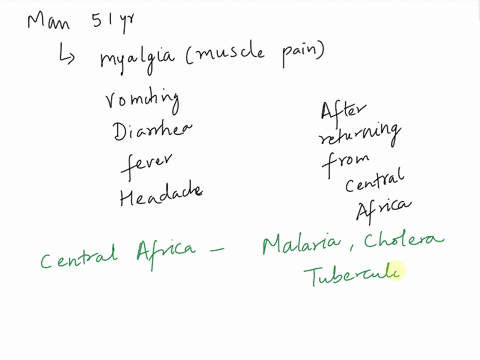 Man 51 yr
↳ myalgia (muscle pain)
vomiting
Diarrhea
fever
Headache
After
returning
from
Central
Africa
Central Africa - Malaria, Cholera
Tubercul